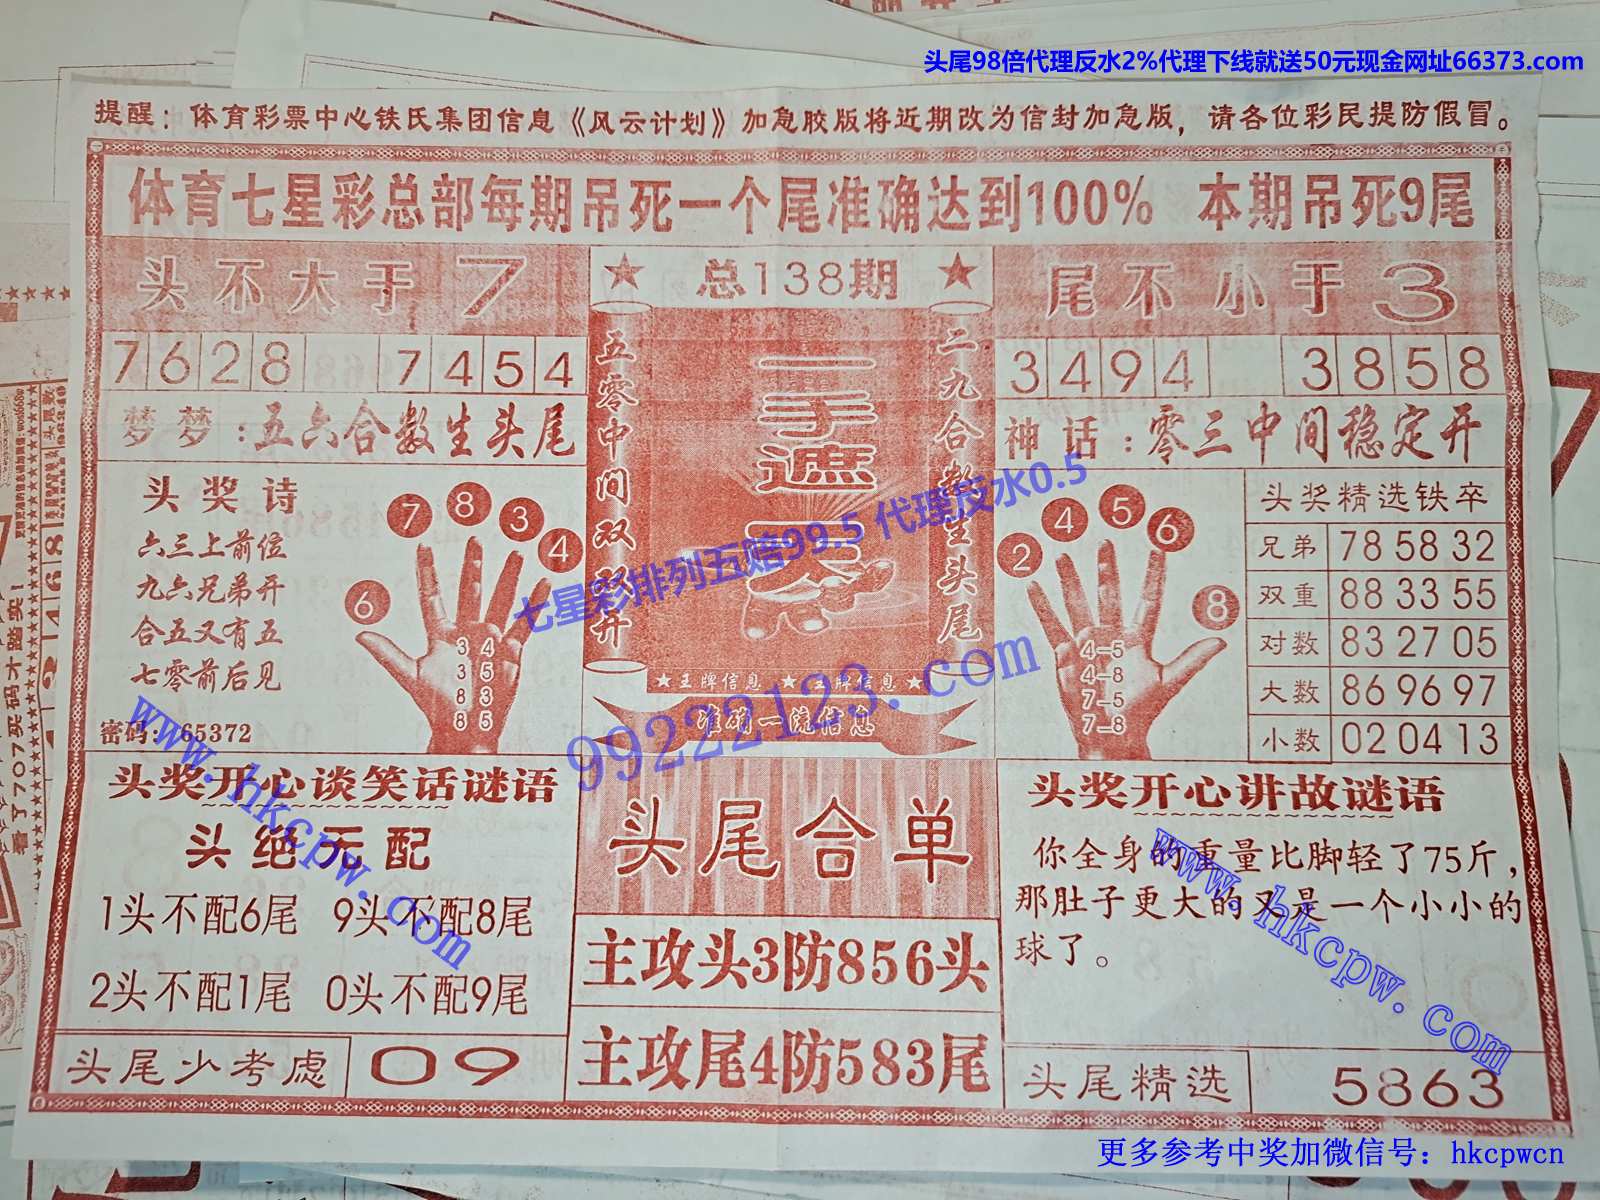 头尾98倍代理反水2%代理下线就送50元现金网址66373.com
提醒：体育彩票中心铁氏集团信息《风云计划》加急胶版将近期改为信封加急版，请各位彩民提防假冒。
体育七星彩总部每期吊死一个尾准确达到100% 本期吊死9尾
头不大于7
★ 总138期 ★
尾不小于3
7628 7454
3494 3858
梦梦：五六合数生头尾
神话：零三中间稳定开
五零中间双双开
一手遮天
二九合数生头尾
★王牌信息 ★ 王牌信息★
准确一流信息
头奖诗
六三上前位
九六兄弟开
合五又有五
七零前后见
密码：65372
6 7 8 3 4
3 4
3 5
8 3
8 5
2 4 5 6 8
4-5
4-8
7-5
7-8
头奖精选铁卒
兄弟 78 58 32
双重 88 33 55
对数 83 27 05
大数 86 96 97
小数 02 04 13
七星彩排列五赔99.5 代理反水0.5
99222123.com
www.hkcpw.com
www.hkcpw.com
头奖开心谈笑话谜语
头绝无配
1头不配6尾 9头不配8尾
2头不配1尾 0头不配9尾
头尾少考虑 09
头尾合单
主攻头3防856头
主攻尾4防583尾
头奖开心讲故谜语
你全身的重量比脚轻了75斤，
那肚子更大的又是一个小小的
球了。
头尾精选 5863
更多参考中奖加微信号：hkcpwcn